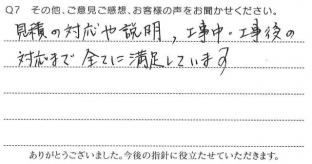 Q7 その他、ご意見ご感想、お客様の声をお聞かせください。
見積の対応や説明，工事中・工事後の
対応まで全てに満足しています
ありがとうございました。今後の指針に役立たせていただきます。